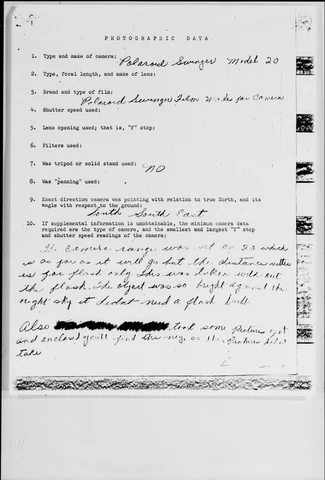 PHOTOGRAPHIC DATA
1. Type and make of camera: Polaroid Swinger Model 20
2. Type, focal length, and make of lens:
3. Brand and type of film: Polaroid Swinger Film Made for Camera
4. Shutter speed used:
5. Lens opening used; that is, "f" stop:
6. Filters used:
7. Was tripod or solid stand used: NO
8. Was "panning" used:
9. Exact direction camera was pointing with relation to true North, and its
angle with respect to the ground:
South South East
10. If supplemental information is unobtainable, the minimum camera data
required are the type of camera, and the smallest and largest "f" stop
and shutter speed readings of the camera:
The camera range was set on 20 which
is as far as it will go but the distance
is for flash only. This was taken without
the flash. The object was so bright against the
night sky it didnt need a flash bulb.
Also took some Picture
and enclosed you'll find the neg. as the Pictures didnt
take